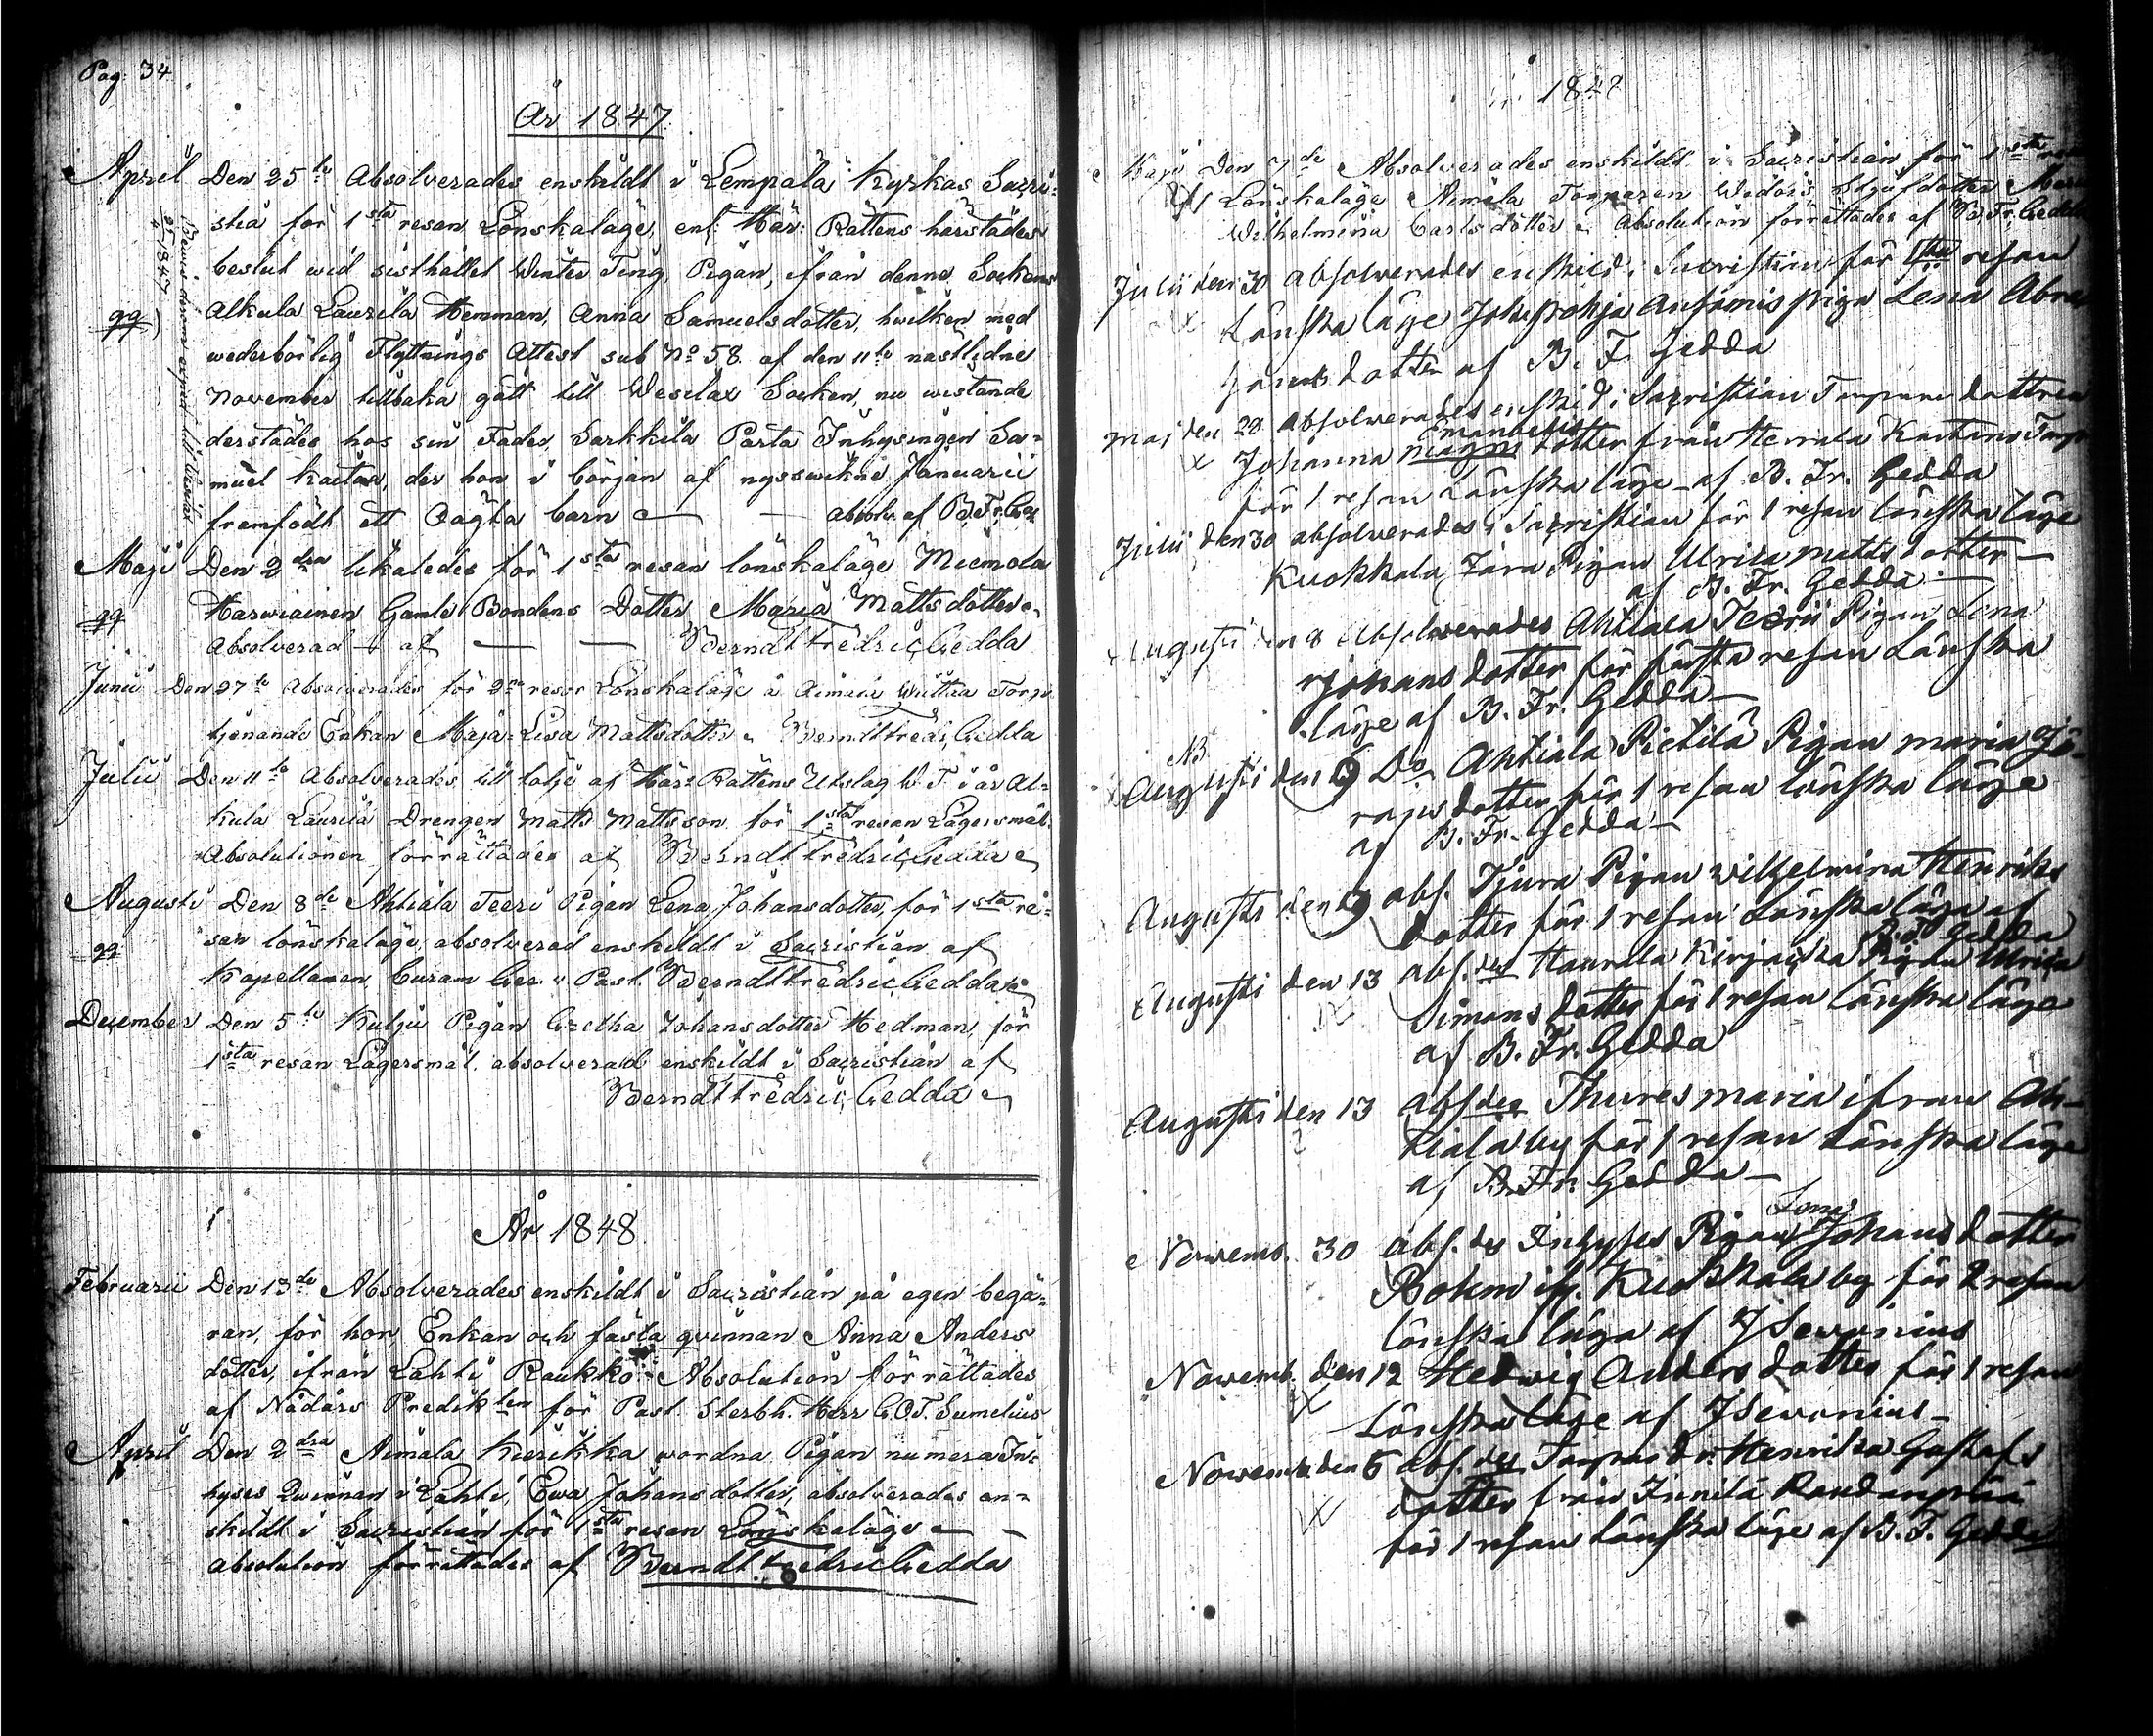 Pag: 34
År 1847
April Den 25te Absolverades enskildt i Lempäla Kyrkas Sacri-
stia för 1sta resan Lönskaläge, enl. Här: Rättens härstädes
beslut wid sisthållet Winter Ting, Pigan, ifrån denne Sockens
qq Alkula Laurila Hemman, Anna Samuelsdotter, hwilken med
wederbörlig Flyttnings Attest sub No 58 af den 11te nästlidne
November tillbaka gått till Wesilax Socken, nu wistande
derstädes hos sin Fader, Sarkkila Pärta Inhysingen Sa-
muel Kaitaa, der hon i början af nysswikne Januarii
framfödt ett Oägta barn — absolv. af B. Fr. Ged.
25/4 1847
Maji Den 2dra likaledes för 1sta resan lönskaläge Miemola
qq Harwiainen Gamle Bondens Dotter, Maria Mattsdotter
Absolverad — af — — Berndt Fredric Gedda
Junii Den 27de Absolverades för 2ra resor Lönskaläge å Aimala Torp
tjenande Enkan Maja-Lisa Mattsdotter Berndt Fredr. Gedda
Julii Den 11te Absolverades till följe af Här: Rättens Utslag W. T. i år Al-
kula Laurila Drengen Matts Mattsson för 1sta resan Lägersmål.
Absolutionen förrättades af Berndt Fredric Gedda
Augusti Den 8de Ahtiala Teeri Pigan Lena Johansdotter, för 1sta re-
qq san lönskaläge, absolverad enskildt i Sacristian af
Kapellanen, Curam Ger. Past. Berndt Fredric Gedda
December Den 5te Kulju Pigan Gretha Johansdotter Hedman, för
1sta resan Lägersmål. absolverad enskildt i Sacristian af
Berndt Fredric Gedda
År 1848
Februarii Den 13de Absolverades enskildt i Sacristian på egen begä-
ran, för hor, Enkan och fästa qvinnan Anna Anders
dotter, ifrån Lahti Raukko. Absolution förrättades
af Nådårs Predikten för Past. Sterbh. Herr G. O. T. Sumelius
April Den 2dra Aimala Kierikka wordna Pigan numera In-
hyses Qwinnan i Lahti, Ewa Johansdotter, absolverades en-
skildt i Sacristian för 1sta resan Lönskaläge —
absolution förrättades af Berndt Fredric Gedda
1848
Maji Den 7de Absolverades enskildt i Sacristian för 1sta
Lönskaläge Aimala Torparen Styfdotter
Wilhelmina Carlsdotter. Absolution förrättades af B. Fr. Gedda
Julii den 30 absolwerades enskild i Sacristian för 1sta resan
Lönska läge piga Lena Abra
hams dotter af B. F. Gedda
Maj den 28 absolwerades enskild i Sacristian Torpare dottren
Emanuels
Johanna Magns dotter från Herrala Torp
för 1 resan Lönska läge af B. Fr. Gedda
Julii den 30 absolwerades i Sacristian för 1 resan lönska läge
Kuokkala Jära Pigan Ulrica Matts dotter —
af B. Fr. Gedda —
Augusti den 8 Absolwerades Ahtiala Teerii Pigan Lena
Johans dotter för första resan Lönska
läge af B. Fr. Gedda —
NB
Augusti den 6 Do Ahtiala Pietilä Pigan Maria Jö-
rajs dotter för 1 resan lönska läge
af B. Fr. Gedda —
Augusti den 9 abs. Pigan Wilhelmina Henriks
dotter för 1 resan Lönska läge af
Gedda
Augusti den 13 abs. des Haurala Pigan Ulrica
Simons dotter för 1 resan lönska läge
af B. Fr. Gedda
Augusti den 13 abs des Thures Maria ifrån Ah-
tiala by för 1 resan Lönska läge
af B. Fr. Gedda —
Nowemb. 30 abs. des Inhyses Pigan Johans dotter
Bohm ifr. Kuokkala by för 2 resan
lönska läga af J Sewonius
Nowemb. den 12 Hedwig Anders dotter för 1 resan
Lönska läge af J Sewonius —
Nowemb. den 6 abs. des Torpar Dr. Henrika Gustafs
dotter från Innilä
för 1 resan Lönska läge af B. F. Gedda